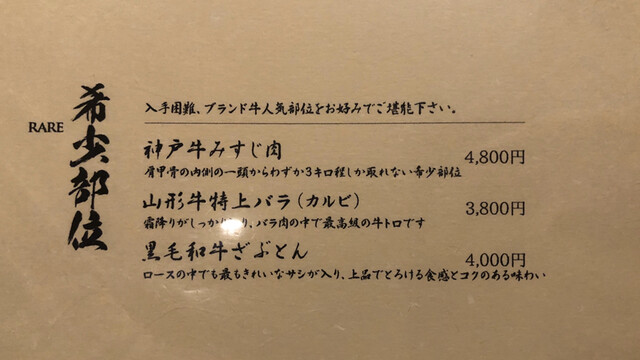 RARE
希少部位
入手困難、ブランド牛人気部位をお好みでご堪能下さい。
神戸牛みすじ肉 4,800円
肩甲骨の内側の一頭からわずか3キロ程しか取れない希少部位
山形牛特上バラ（カルビ） 3,800円
霜降りがしっかり、バラ肉の中で最高級の牛トロです
黒毛和牛ざぶとん 4,000円
ロースの中でも最もきれいなサシが入り、上品でとろける食感とコクのある味わい